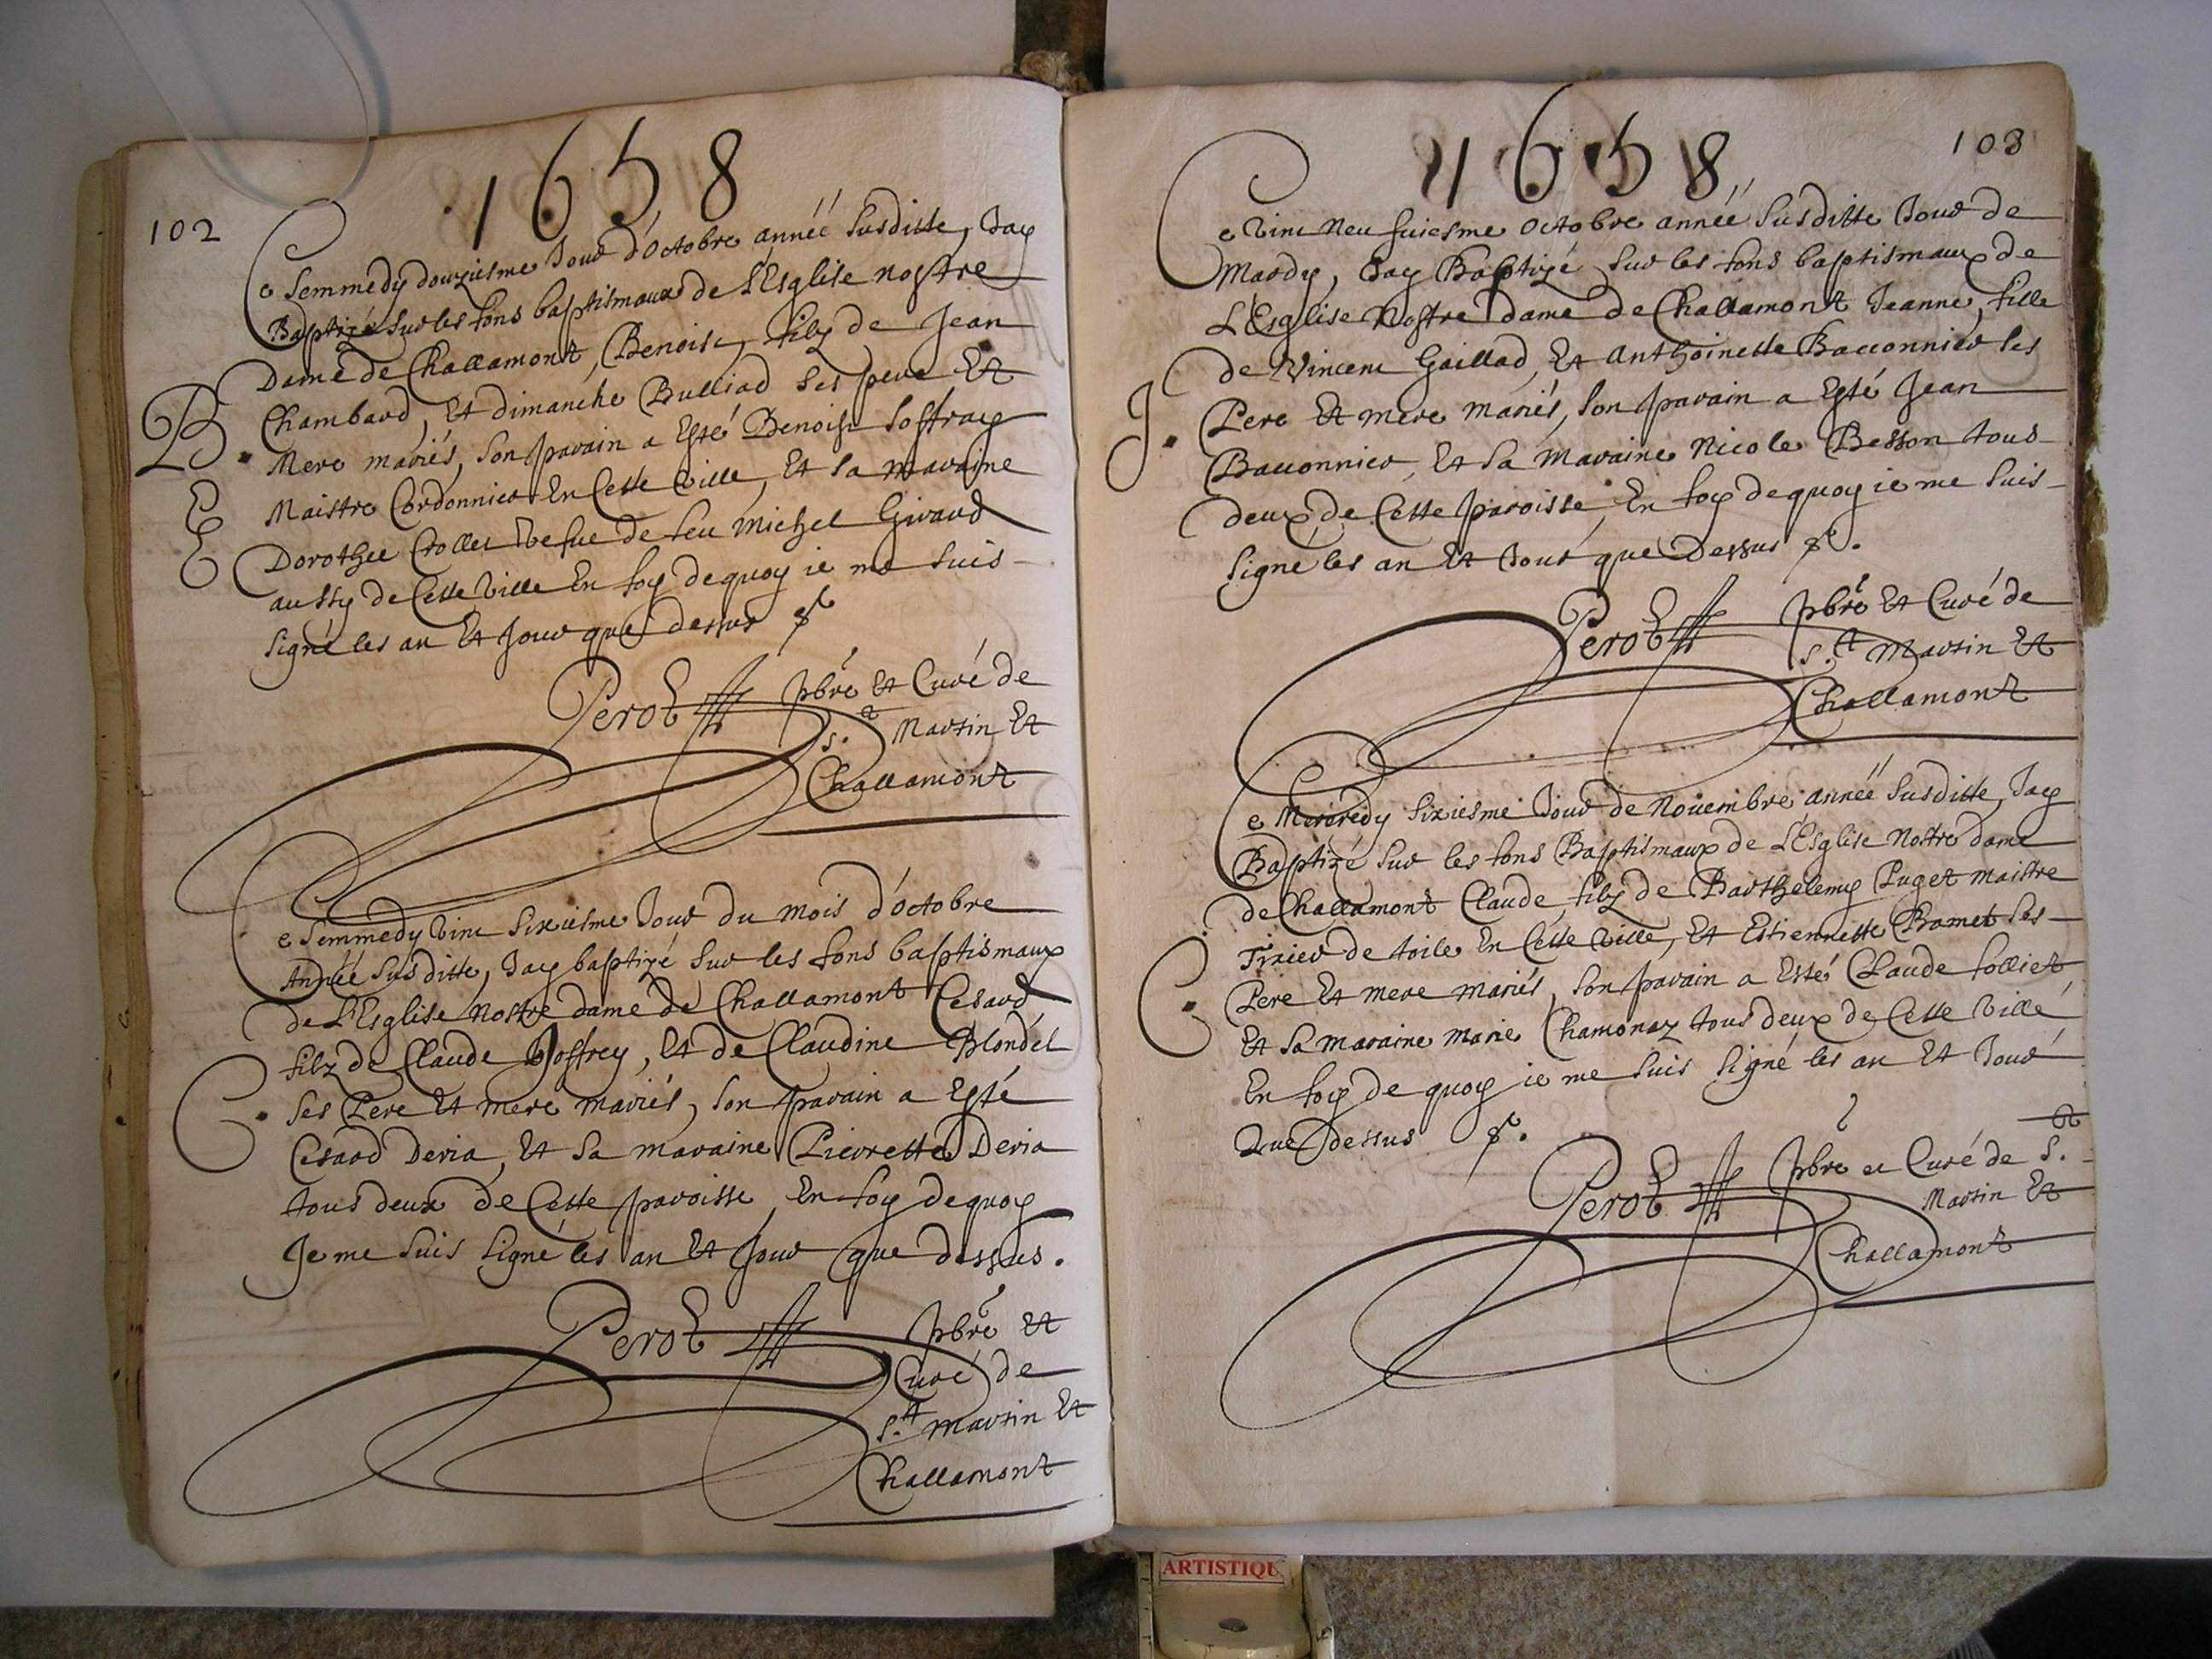 1658
102
Ce Semmedy douziesme Jour d'Octobre année susditte, Jay
Baptizé sur les fons baptismaux de L'Esglise nostre
Dame de Challamont, Benoist, filz de Jean
Chambard, Et dimanche Bulliad ses pere Et
B.
Mere mariés, son parain a Esté Benoist Joffray
Maistre Cordonnier En Cette Ville, Et sa maraine
Dorothee Crollet Vefue de feu Michel Girard
aussy de Cette Ville En foy de quoy ie me suis
signé les an Et Jour que dessus
Perot pbre Et Curé de
S.t Martin Et
Challamont
Ce Semmedy Vint sixiesme Jour du mois d'Octobre
Année susditte, Jay baptizé sur les fons baptismaux
de L'Esglise Nostre dame de Challamont Cesard
filz de Claude Joffrey, Et de Claudine Blondel
C.
ses Pere Et mere mariés, son parain a Esté
Cesard Deria, Et sa maraine Pierrette Deria
tous deux de Cette paroisse, En foy de quoy
Je me suis signé les an Et Jour que dessus.
Perot pbre Et
Curé de
S.t Martin Et
Challamont
1658
103
Ce Vint Neufuiesme Octobre année susditte Jour de
Mardy, Jay Baptizé sur les fons baptismaux de
L'Esglise Nostre dame de Challamont Jeanne, fille
de Vincent Gaillad, Et Anthoinette Bauonnier ses
J.
Pere Et mere mariés, son parain a Esté Jean
Bauonnier, Et sa maraine Nicole Besson tous
deux de Cette paroisse, En foy de quoy ie me suis
signé les an Et Jour que Dessus
Perot pbre Et Curé de
S.t Martin Et
Challamont
Ce Mercredy sixiesme Jour de Nouembre année susditte, Jay
Baptizé sur les fons Baptismaux de L'Esglise Nostre dame
de Challamont Claude, filz de Barthelemy Puget maistre
Tixier de toile En Cette Ville, Et Estiennette Bramet ses
C.
Pere Et mere mariés, son parain a Esté Claude Folliet
Et sa maraine Marie Chamonaz tous deux de Cette Ville
En foy de quoy ie me suis signé les an Et Jour
Que dessus
Perot pbre et Curé de S.t
Martin Et
Challamont
ARTISTIQU